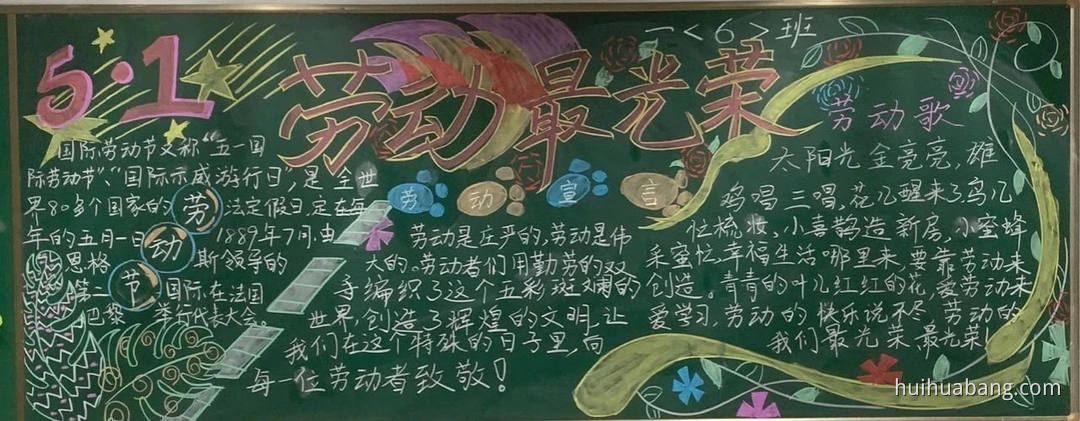 5·1
劳动最光荣
一<6>班
国际劳动节又称“五一国
际劳动节”、“国际示威游行日”,是全世
界80多个国家的
劳
法定假日,定在每
年的五月一日
动
1889年7月,由
恩格
斯领导的
第二
节
国际在法国
巴黎
举行代表大会
劳动宣言
劳动是庄严的,劳动是伟
大的。劳动者们用勤劳的双
手编织了这个五彩斑斓的
世界,创造了辉煌的文明,让
我们在这个特殊的日子里,向
每一位劳动者致敬!
劳动歌
太阳光金亮亮,雄
鸡唱三唱,花儿醒来了鸟儿
忙梳妆、小喜鹊造新房,小蜜蜂
采蜜忙,幸福生活哪里来,要靠劳动来
创造。青青的叶儿红红的花,爱劳动来
爱学习,劳动的快乐说不尽劳动的
我们最光荣最光荣!
huihuabang.com